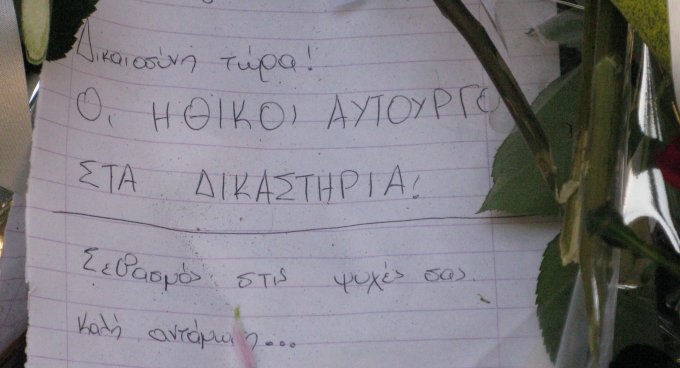 Δικαιοσύνη τώρα!
Οι ΗΘΙΚΟΙ ΑΥΤΟΥΡΓΟ
ΣΤΑ ΔΙΚΑΣΤΗΡΙΑ!
Σεβασμός στις ψυχές σας.
Καλή αντάμωση...